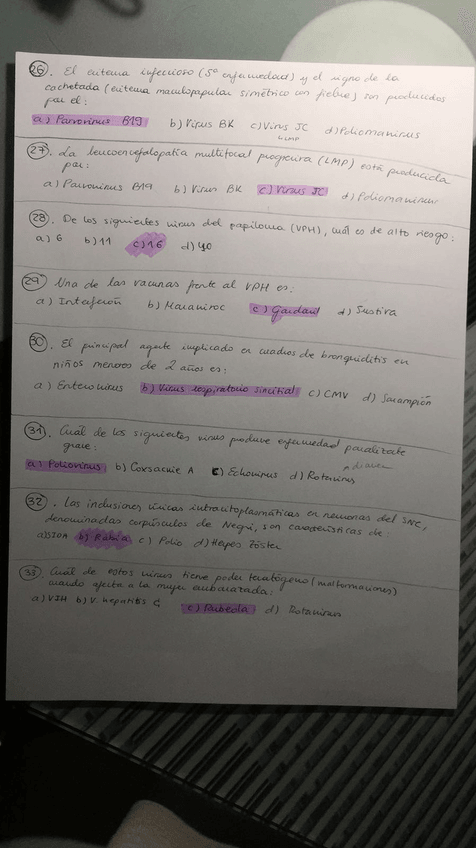 26. El eritema infeccioso (5ª enfermedad) y el signo de la
cachetada (eritema maculopapular simétrico con fiebre) son producidos
por el:
a) Parvovirus B19 b) Virus BK c) Virus JC d) Poliomavirus
LMP
27. La leucoencefalopatía multifocal progresiva (LMP) está producida
por:
a) Parvovirus B19 b) Virus BK c) Virus JC d) Poliomavirus
28. De los siguientes virus del papiloma (VPH), cuál es de alto riesgo:
a) 6 b) 11 c) 16 d) 40
29. Una de las vacunas frente al VPH es:
a) Interferón b) Maraviroc c) Gardasil d) Sustiva
30. El principal agente implicado en cuadros de bronquiolitis en
niños menores de 2 años es:
a) Enterovirus b) Virus respiratorio sincitial c) CMV d) Sarampión
31. Cuál de los siguientes virus produce enfermedad paralizante
grave:
a) Poliovirus b) Coxsackie A c) Echovirus d) Rotavirus
32. Las inclusiones víricas intracitoplasmáticas en neuronas del SNC,
denominadas corpúsculos de Negri, son características de:
b) Rabia c) Polio d) Herpes Zóster
33. Cuál de estos virus tiene poder teratógeno (malformaciones)
cuando afecta a la mujer embarazada:
a) VIH b) V. hepatitis C c) Rubeola d) Rotavirus